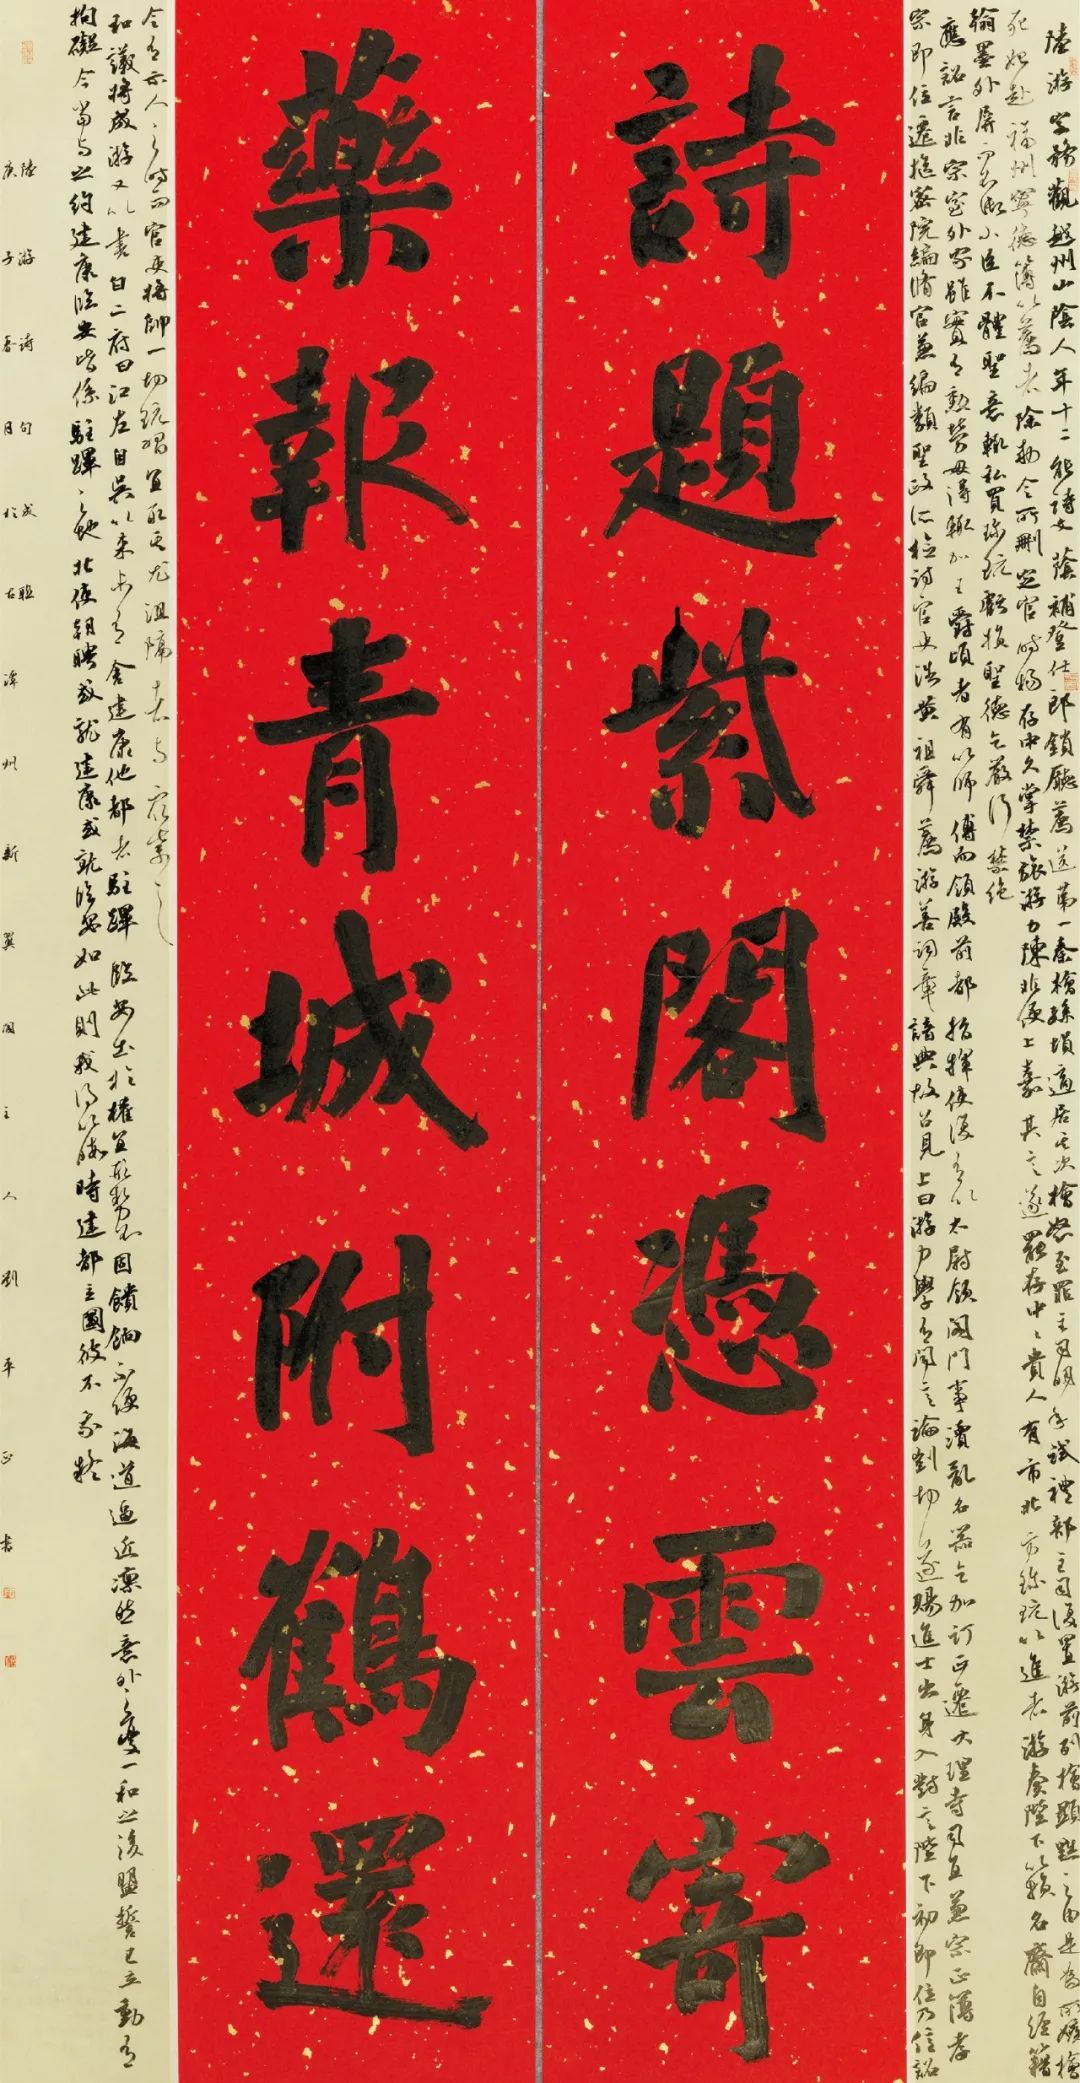 陸游字務觀越州山陰人年十二能詩文蔭補登仕郎鎖廳薦送第一秦檜孫塤適居其次檜怒至罪主司明年試禮部主司復置游前列檜顯黜之由是為所嫉檜
死始赴福州寧德簿以薦者除勅令所刪定官時楊存中久掌禁旅游力陳非便上嘉其言遂罷存中中貴人有市北方珍玩以進者游奏陛下以損名齋自經籍
翰墨外屏而不御小臣不體聖意輒私買珍玩虧損聖德乞嚴行禁絕
應詔言非宗室外家雖實有勳勞毋得輒加王爵頃者有以師傅而領殿前都指揮使復有以太尉領閤門事瀆亂名器乞加訂正遷大理寺司直兼宗正簿孝
宗即位遷樞密院編脩官兼編類聖政所檢討官史浩黃祖舜薦游善詞章諳典故召見上曰游力學有聞言論剴切遂賜進士出身入對言陛下初即位乃信詔
詩題紫閣憑雲寄
藥報青城附鶴還
令有示人之時而官吏將帥一切玩習宜取其尤沮隔者與衆棄之
和議將成游又以書白二府曰江左自吳以來未有舍建康他都者駐蹕臨安出於權宜形勢不固饋餉不便海道逼近凜然意外之憂一和之後盟誓已立動有
拘礙今當與之約建康臨安皆係駐蹕之地北使朝聘或就建康或就臨安如此則我得以暇時建都立國彼不我疑
陸游詩句成聯
庚子春月於古潭州新翼閣主人劉平正書